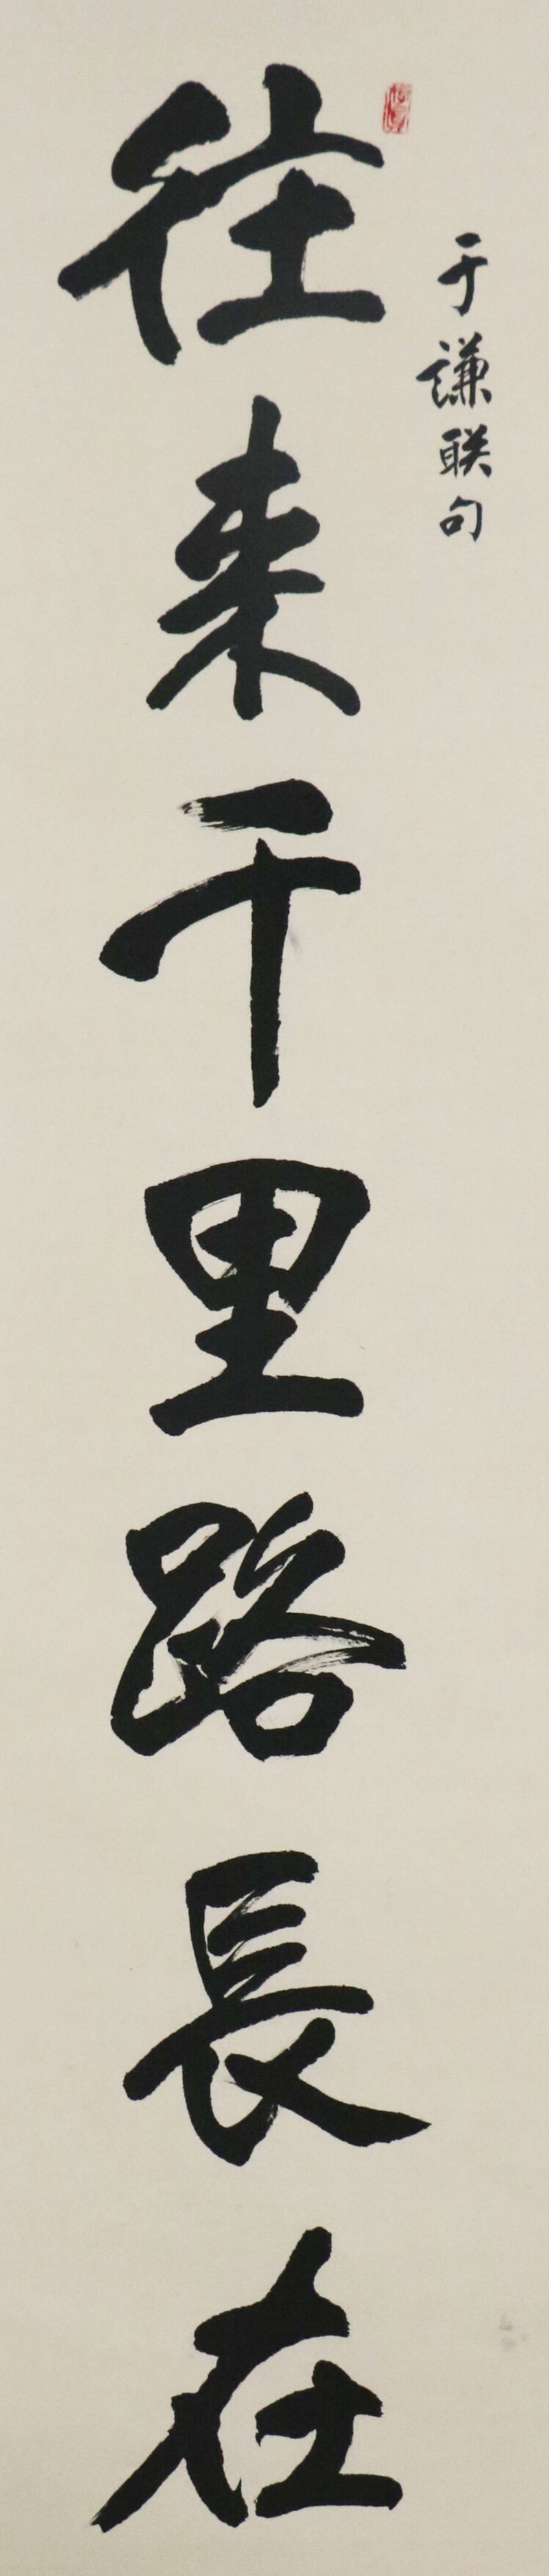 于謙联句
往来千里路長在